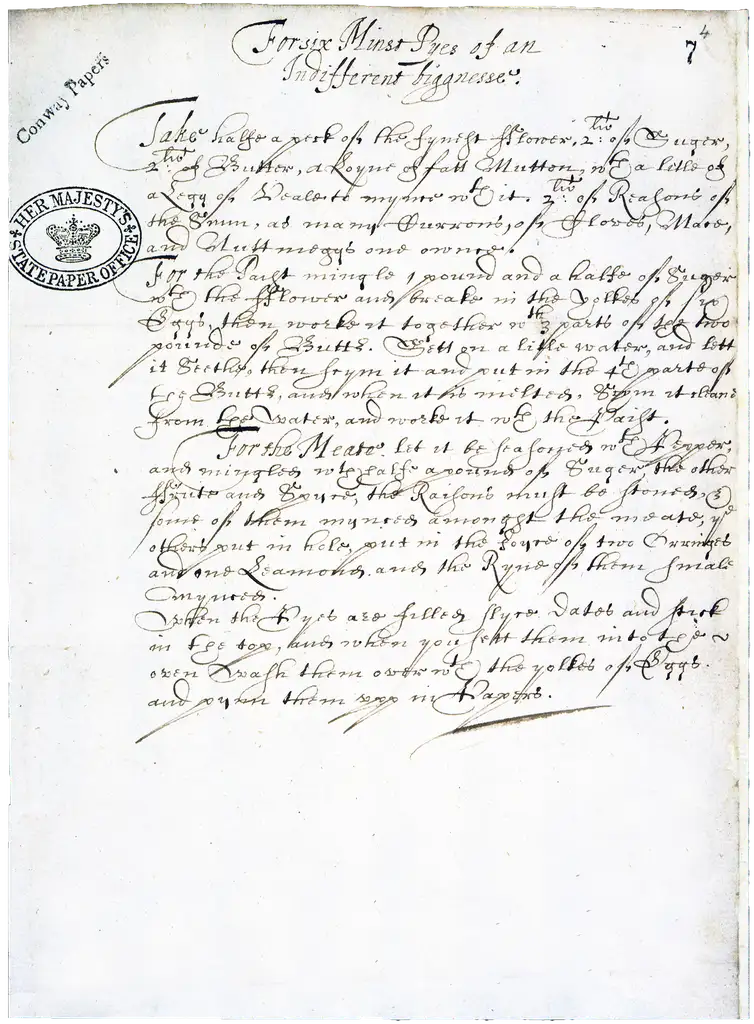 4
7
For six Minst Pyes of an
Indifferent biggnesse.
Conway Papers
Take halfe a peck of the fynest fflower, 2.li of Suger,
2.li of Butter, a Loyne of fatt Mutton, wth a litle of
a Legg of Veale to mynce wth it. 2.li of Reasons of
the Sunn, as many Currons, of Cloves, Mace,
and Nuttmeggs one ownce.
HER MAJESTY'S
STATE PAPER OFFICE
For the Paist mingle 1 pound and a halfe of Suger
wth the fflower and breake in the yolkes of six
Eggs, then worke it together wth 3 parts of the two
pounds of Buttr. Sett on a litle water, and lett
it Seethe, then scym it and put in the 4th parte of
the Buttr, and when it is melted, Scym it cleane
from the water, and worke it wth the Paist.
For the Meate let it be seasoned wth Pepper,
and mingled wth halfe a pound of Suger the other
ffrute and Spyce, the Raisons must be stoned, &
some of them mynced amongst the meate, ye
others put in hole, put in the Joyce of two Orringes
and one Leamond, and the Ryne of them smale
mynced.
When the Pyes are filled slyce Dates and stick
in the top, and when you sett them into the
oven Wash them over wth the yolkes of Eggs.
and pynn them upp in Papers.